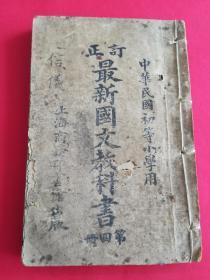 中華民國初等小學用
訂正
最新國文教科書
第四冊
上海商
出版